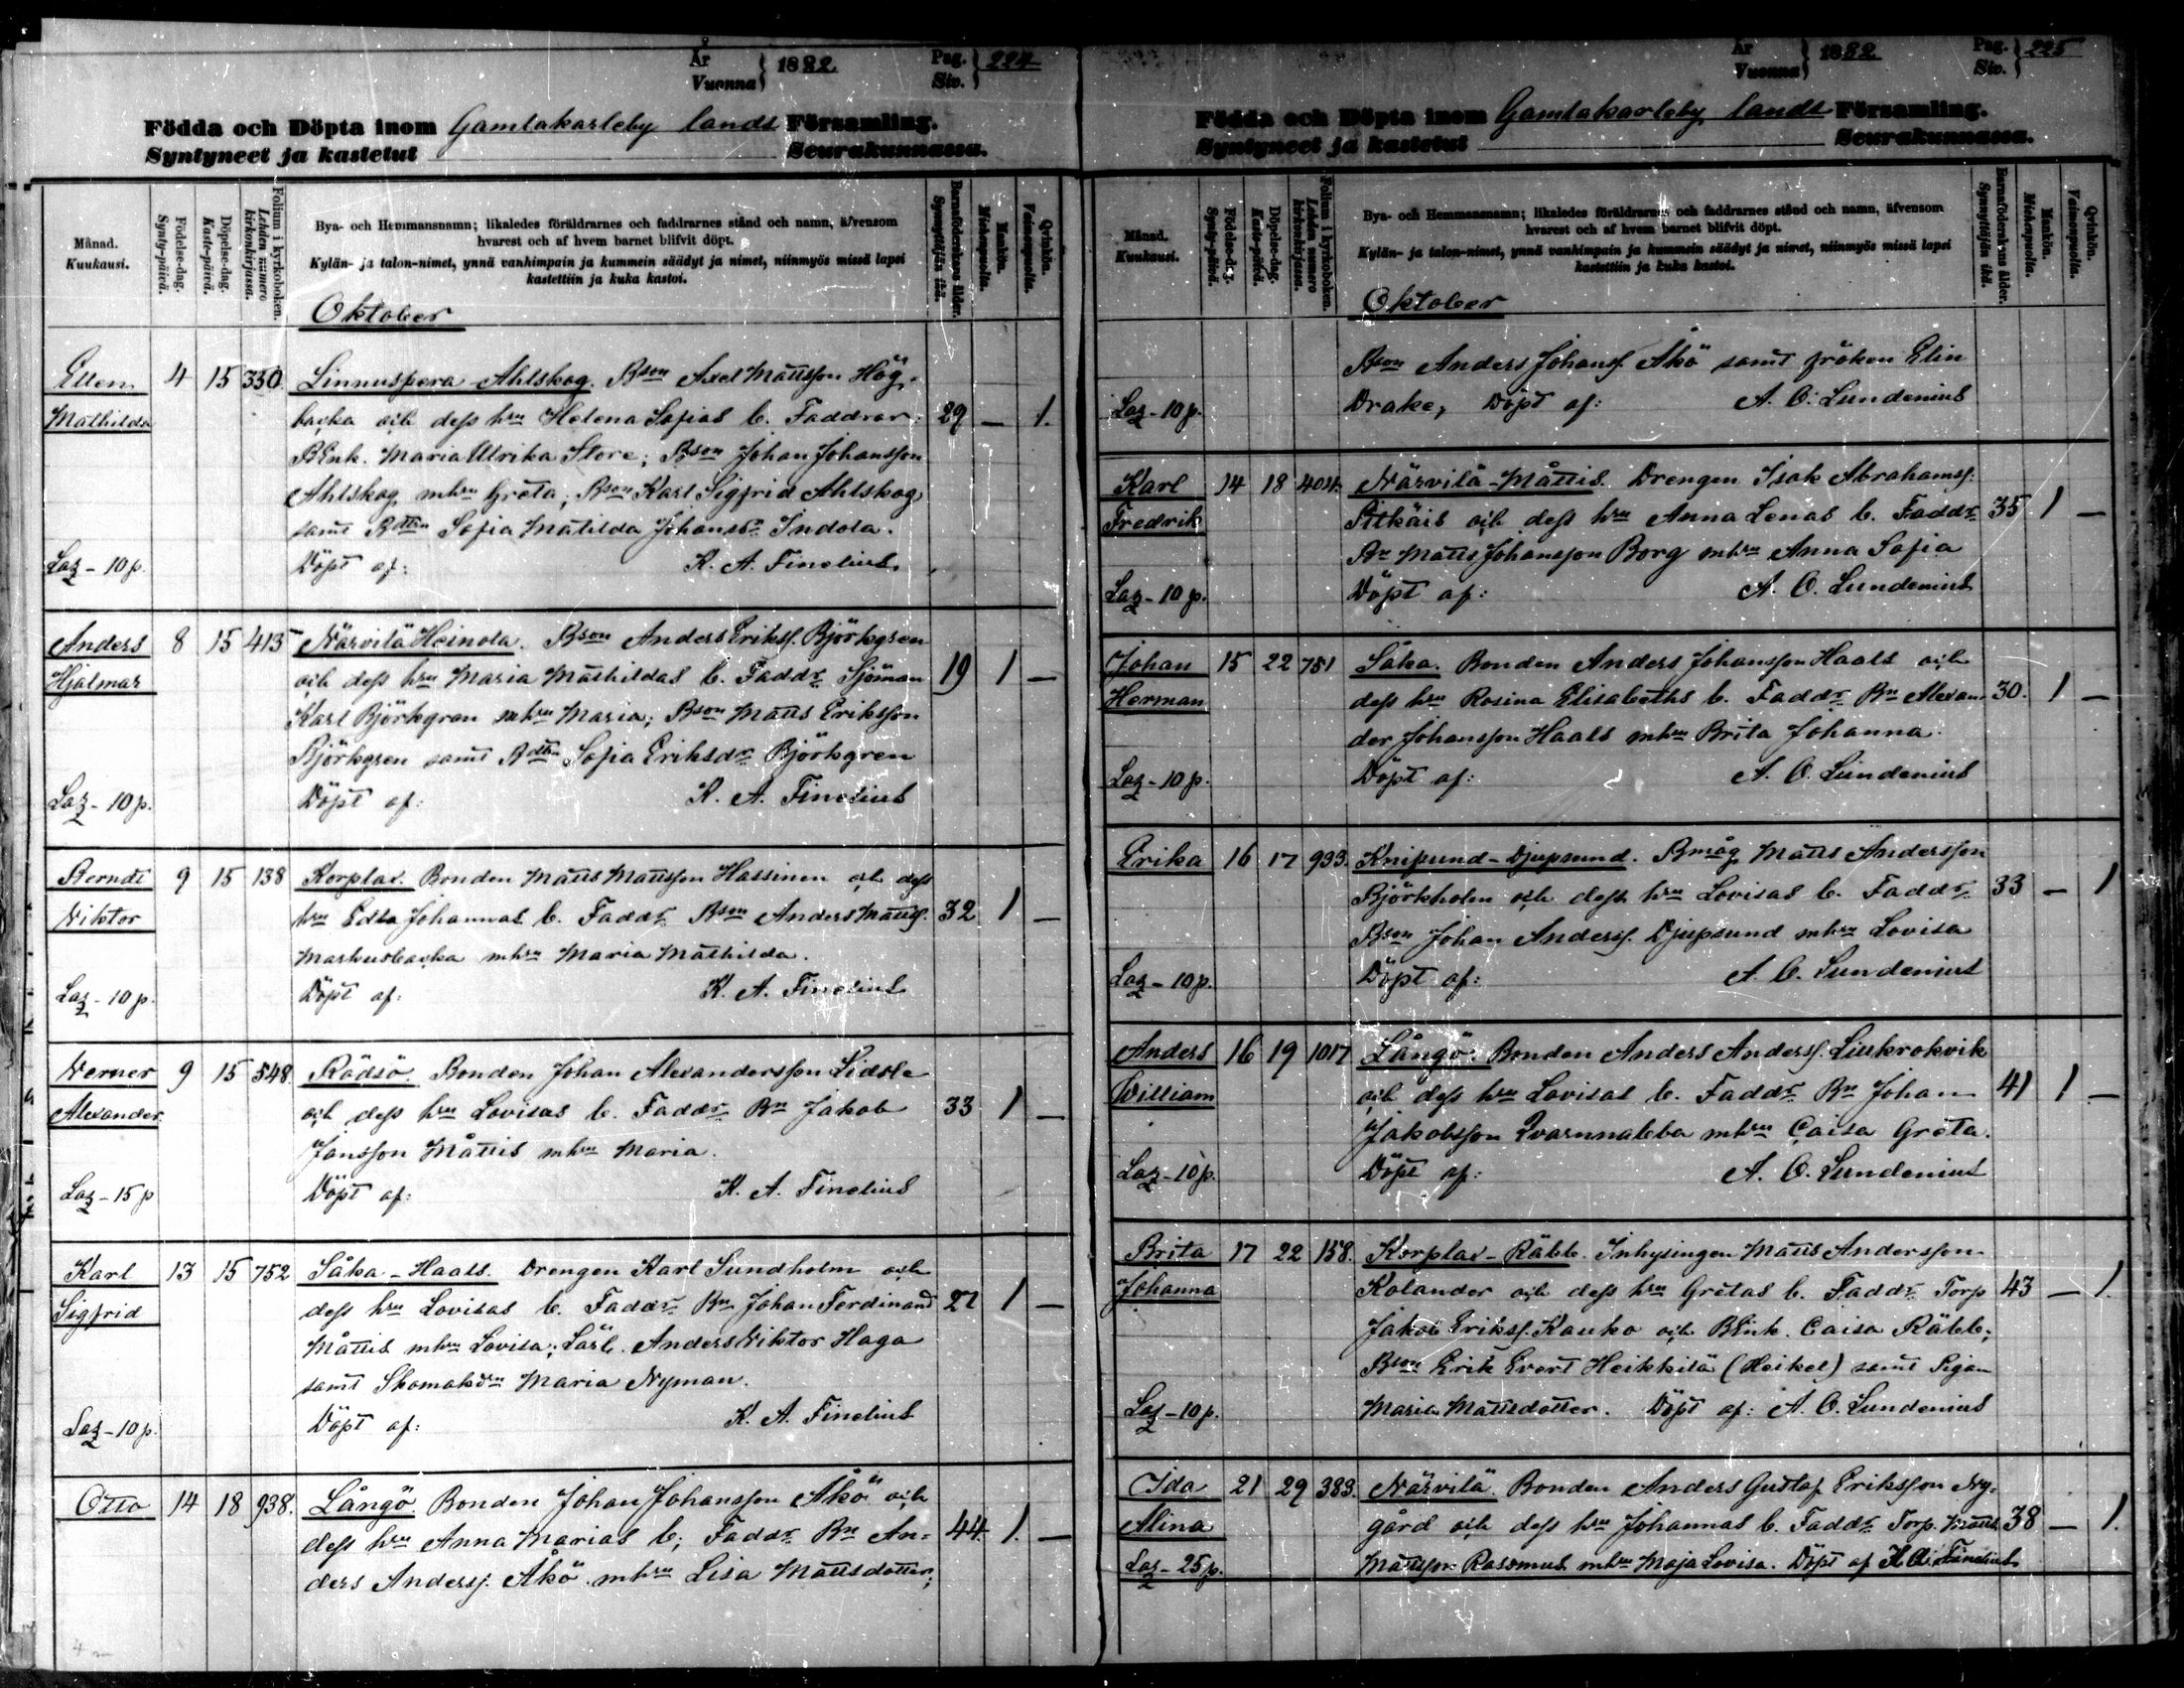 År
Vuonna } 1882
Pag.
Siv. } 224
Födda och Döpta inom Gamlakarleby lands Församling.
Syntyneet ja kastetut Seurakunnassa.
Månad.
Kuukausi.
Födelse-dag.
Synty-päivä.
Döpelse-dag.
Kaste-päivä.
Folium i kyrkoboken.
Lehden numero kirkonkirjassa.
Bya- och Hemmansnamn; likaledes föräldrarnes och faddrarnes stånd och namn, äfvensom
hvarest och af hvem barnet blifvit döpt.
Kylän- ja talon-nimet, ynnä vanhimpain ja kummein säädyt ja nimet, niinmyös missä lapsi
kastettiin ja kuka kastoi.
Barnaföderskans ålder.
Synnyttäjän ikä.
Mankön.
Miehenpuolia.
Qvinkön.
Vaimonpuolia.
Oktober
Ellen 4 15 350. Linnuspera-Ahlskog. Bson Axel Mattsson Hög-
Mathilda backa och dess hru Helena Sofias b. Faddrar: 29 — 1.
BEnk. Maria Ulrika Store; Bson Johan Johansson
Ahlskog mhru Greta; Bson Karl Sigfrid Ahlskog
samt Bdttn Sofia Matilda Johansdr Indola.
Laz - 10 p. Döpt af: K. A. Finelius.
Anders 8 15 413 Närvilä Heinola. Bson Anders Erikss. Björkgren
Hjalmar och dess hru Maria Mathildas b. Faddr Sjöman 19 1 —
Karl Björkgren mhru Maria; Bson Matts Eriksson
Björkgren samt Bdttn Sofia Eriksdr Björkgren
Laz - 10 p. Döpt af: K. A. Finelius
Berndt 9 15 138 Korplax. Bonden Matts Mattsson Hassinen och dess
Viktor hru Edla Johannas b. Faddr Bson Anders Mattss. 32 1 —
Markusbacka mhru Maria Mathilda.
Laz - 10 p. Döpt af: K. A. Finelius
Verner 9 15 548. Rödsö. Bonden Johan Alexandersson Lidsle
Alexander och dess hru Lovisas b. Faddr Bn Jakob 33 1 —
Jansson Måttis mhru Maria.
Laz - 15 p Döpt af: K. A. Finelius
Karl 13 15 752 Såka - Haals. Drengen Karl Sundholm och
Sigfrid dess hru Lovisas b. Faddr Bn Johan Ferdinand 27 1 —
Måttis mhru Lovisa; Lärl. Anders Viktor Haga
samt Skomakdrn Maria Nyman.
Laz - 10 p. Döpt af: K. A. Finelius
Otto 14 18 938. Långö. Bonden Johan Johansson Åkö och
dess hru Anna Marias b; Faddr Bn An- 44. 1. —
ders Anderss. Åkö mhru Lisa Mattsdotter;
År
Vuonna } 1882
Pag.
Siv. } 225
Födda och Döpta inom Gamlakarleby lands Församling.
Syntyneet ja kastetut Seurakunnassa.
Månad.
Kuukausi.
Födelse-dag.
Synty-päivä.
Döpelse-dag.
Kaste-päivä.
Folium i kyrkoboken.
Lehden numero kirkonkirjassa.
Bya- och Hemmansnamn; likaledes föräldrarnes och faddrarnes stånd och namn, äfvensom
hvarest och af hvem barnet blifvit döpt.
Kylän- ja talon-nimet, ynnä vanhimpain ja kummein säädyt ja nimet, niinmyös missä lapsi
kastettiin ja kuka kastoi.
Barnaföderskans ålder.
Synnyttäjän ikä.
Mankön.
Miehenpuolia.
Qvinkön.
Vaimonpuolia.
Oktober
Bson Anders Johanss. Åkö samt fröken Elin
Laz - 10 p. Drake, Döpt af: A. O. Lundenius
Karl 14 18 404. Närvilä-Måttis. Drengen Isak Abrahamss.
Fredrik Pitkäis och dess hru Anna Lenas b. Faddr 35 1 —
Bn Matts Johansson Borg mhru Anna Sofia
Laz - 10 p. Döpt af: A. O. Lundenius
Johan 15 22 751 Såka. Bonden Anders Johansson Haals och
Herman dess hru Rosina Elisabeths b. Faddr Bn Alexan- 30. 1 —
der Johansson Haals mhru Brita Johanna.
Laz - 10 p. Döpt af: A. O. Lundenius
Erika 16 17 933. Knipsund-Djupsund. Bmåg Matts Andersson
Björkholm och dess hru Lovisas b. Faddr 33 — 1
Bson Johan Anderss. Djupsund mhru Lovisa
Laz - 10 p. Döpt af: A. O. Lundenius
Anders 16 19 1017 Långö. Bonden Anders Anderss. Liukrokvik
William och dess hru Lovisas b. Faddr Bn Johan 41 1 —
Jakobsson Qvarnnabba mhru Caisa Greta.
Laz - 10 p. Döpt af: A. O. Lundenius
Brita 17 22 158. Korplax-Räbb. Inhysingen Matts Andersson
Johanna Kolander och dess hru Gretas b. Faddr Torp 43 — 1.
Jakob Erikss. Kauko och BEnk. Caisa Räbb;
Bson Erik Evert Heikkilä (Heikel) samt Pigan
Laz - 10 p. Maria Mattsdotter. Döpt af: A. O. Lundenius
Ida 21 29 383. Närvilä. Bonden Anders Gustaf Eriksson Ny-
Alina gård och dess hru Johannas b. Faddr Torp. Matts 38 — 1.
Laz - 25 p. Mattsson Rasmus mhru Maja Lovisa. Döpt af K. A. Finelius